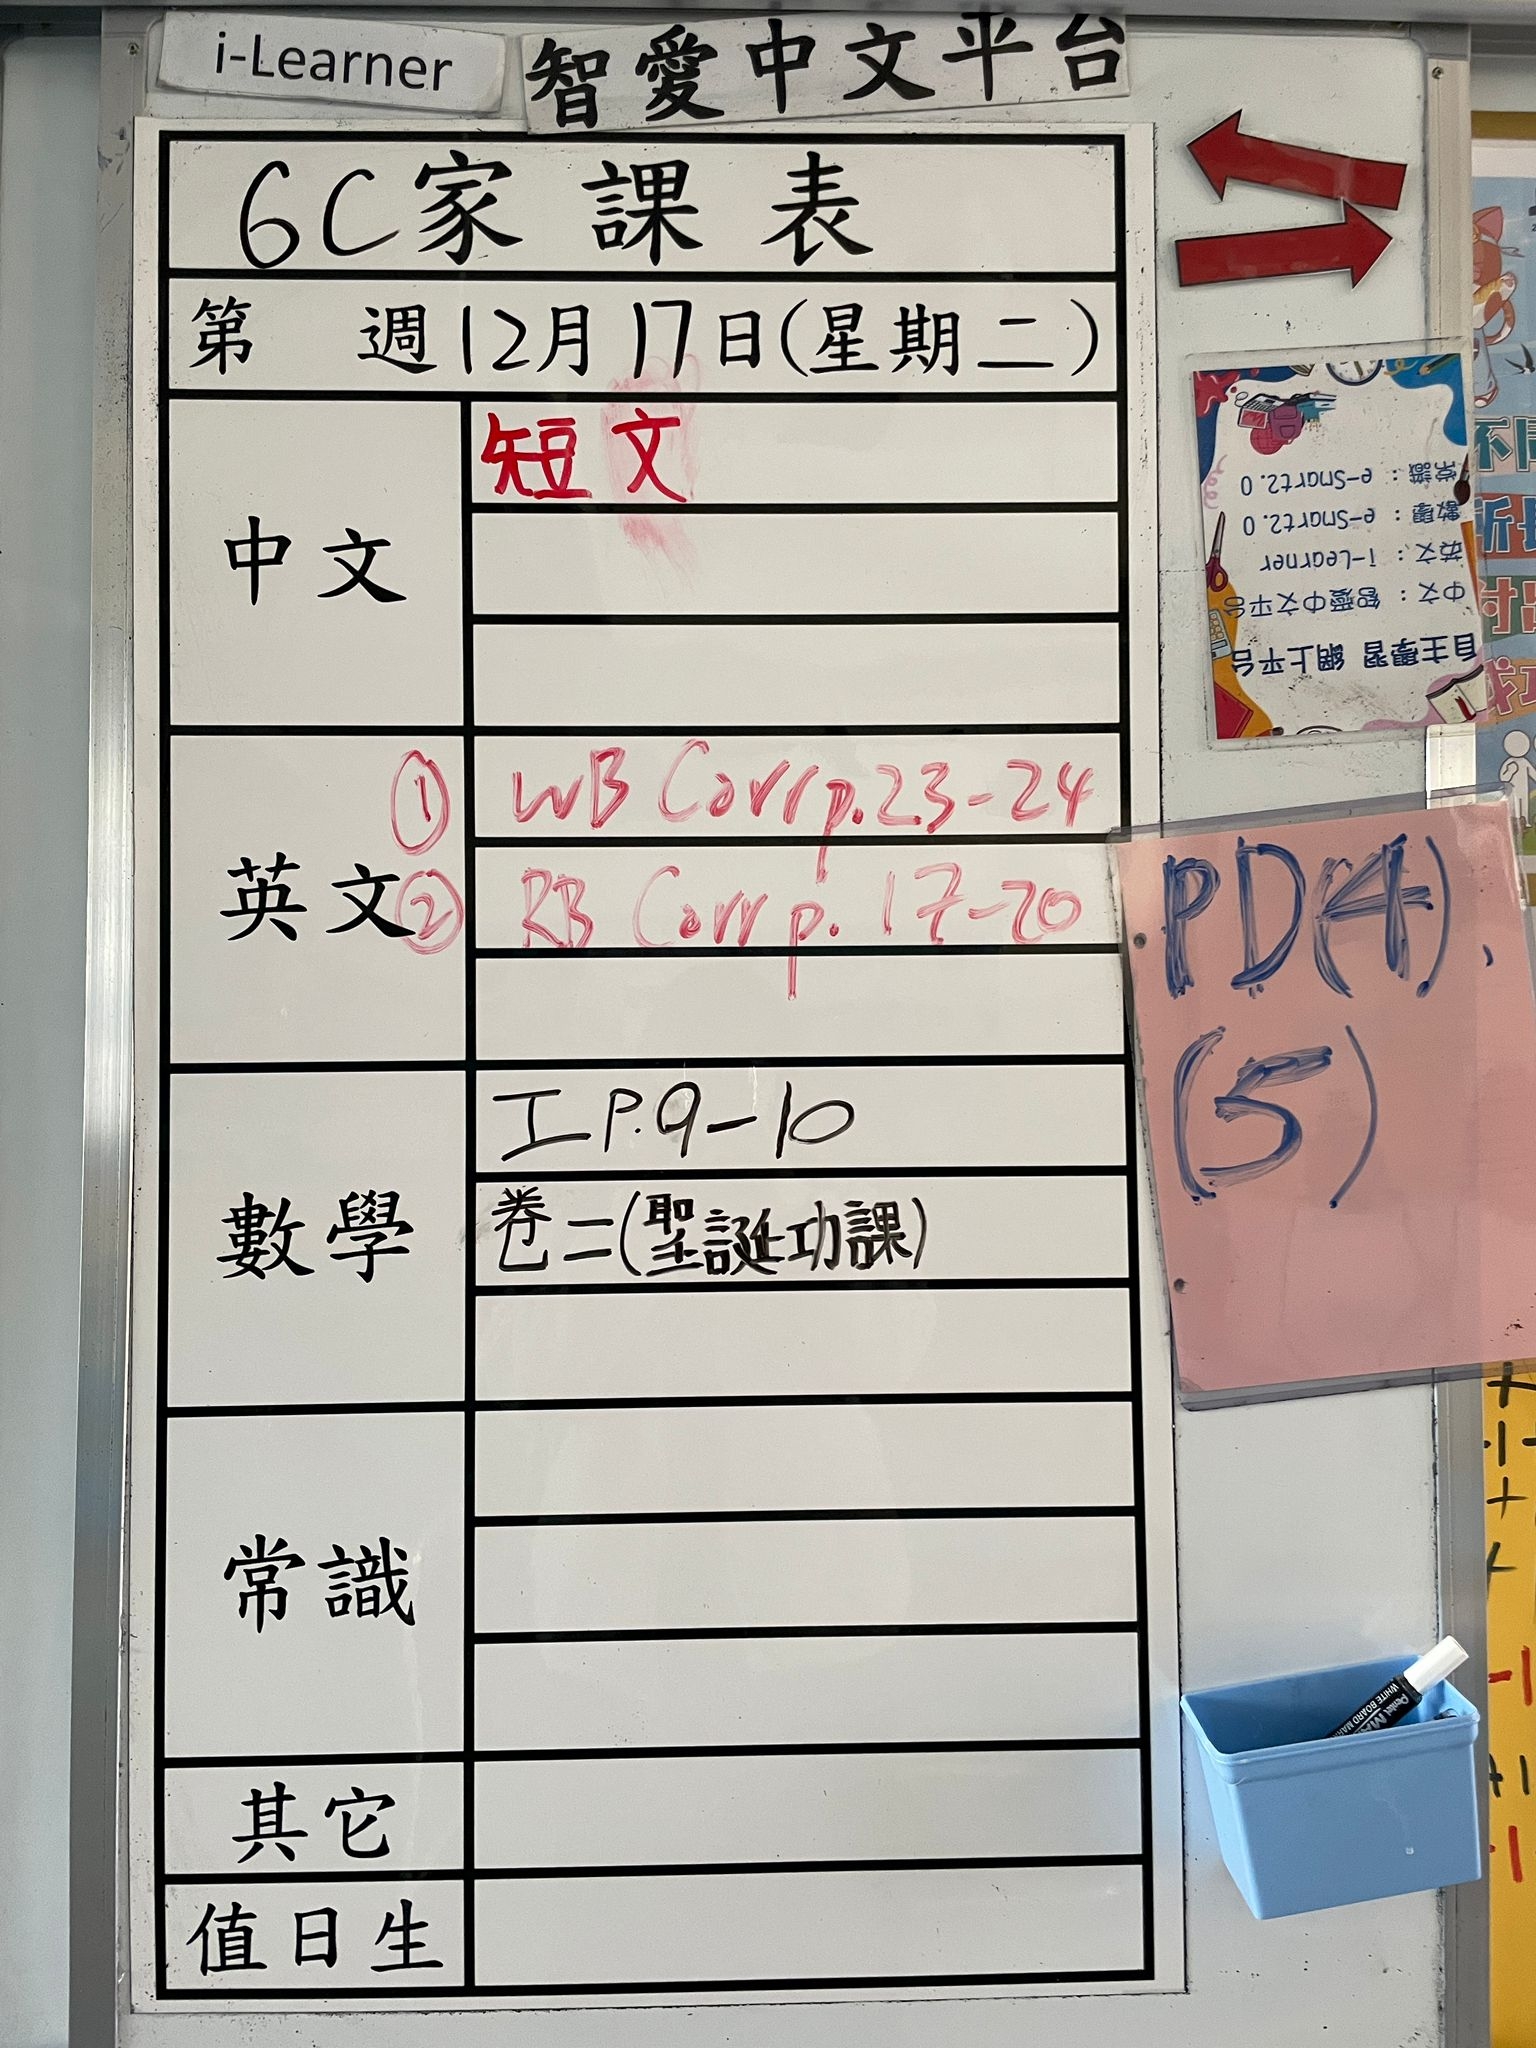 i-Learner
智愛中文平台
6C家課表
第 週12月17日(星期二)
中文
短文
英文
① WB Corr p.23-24
② RB Corr p.17-20
數學
工P.9-10
卷二(聖誕功課)
常識
其它
值日生
PD(4),
(5)
自主學習 網上平台
中文：智愛中文平台
英文：i-Learner
數學：e-Smart2.0
常識：e-Smart2.0
WHITE BOARD MAR
Pentel